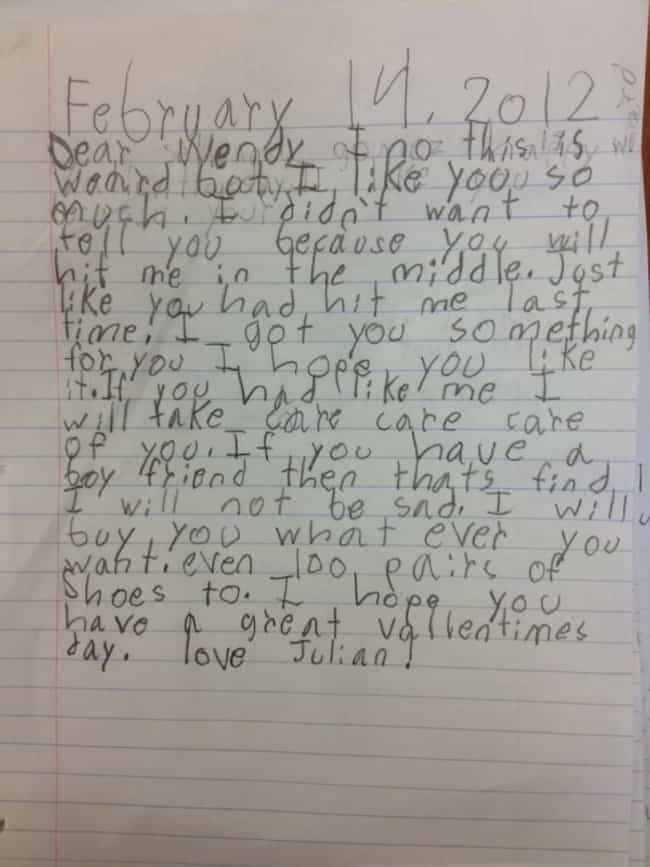 February 14, 2012
Dear Wendy I no this is
weaird bot I like yoou so
much. I didn't want to
tell you because you will
hit me in the middle. Just
like you had hit me last
time! I got you something
for you I hope you like
it. If you had like me I
will take care care care
of you. If you have a
boy friend then thats find
I will not be sad. I will
buy you what ever you
want. even 100 pairs of
shoes to. I hope you
have a great vallentimes
day. love Julian!